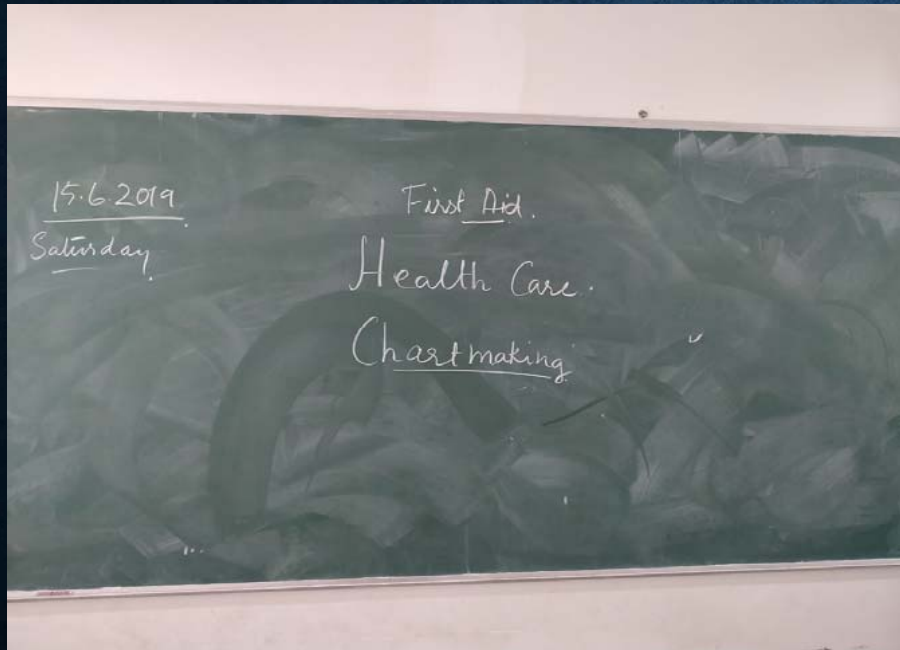 15.6.2019
Saturday
First Aid.
Health Care.
Chartmaking